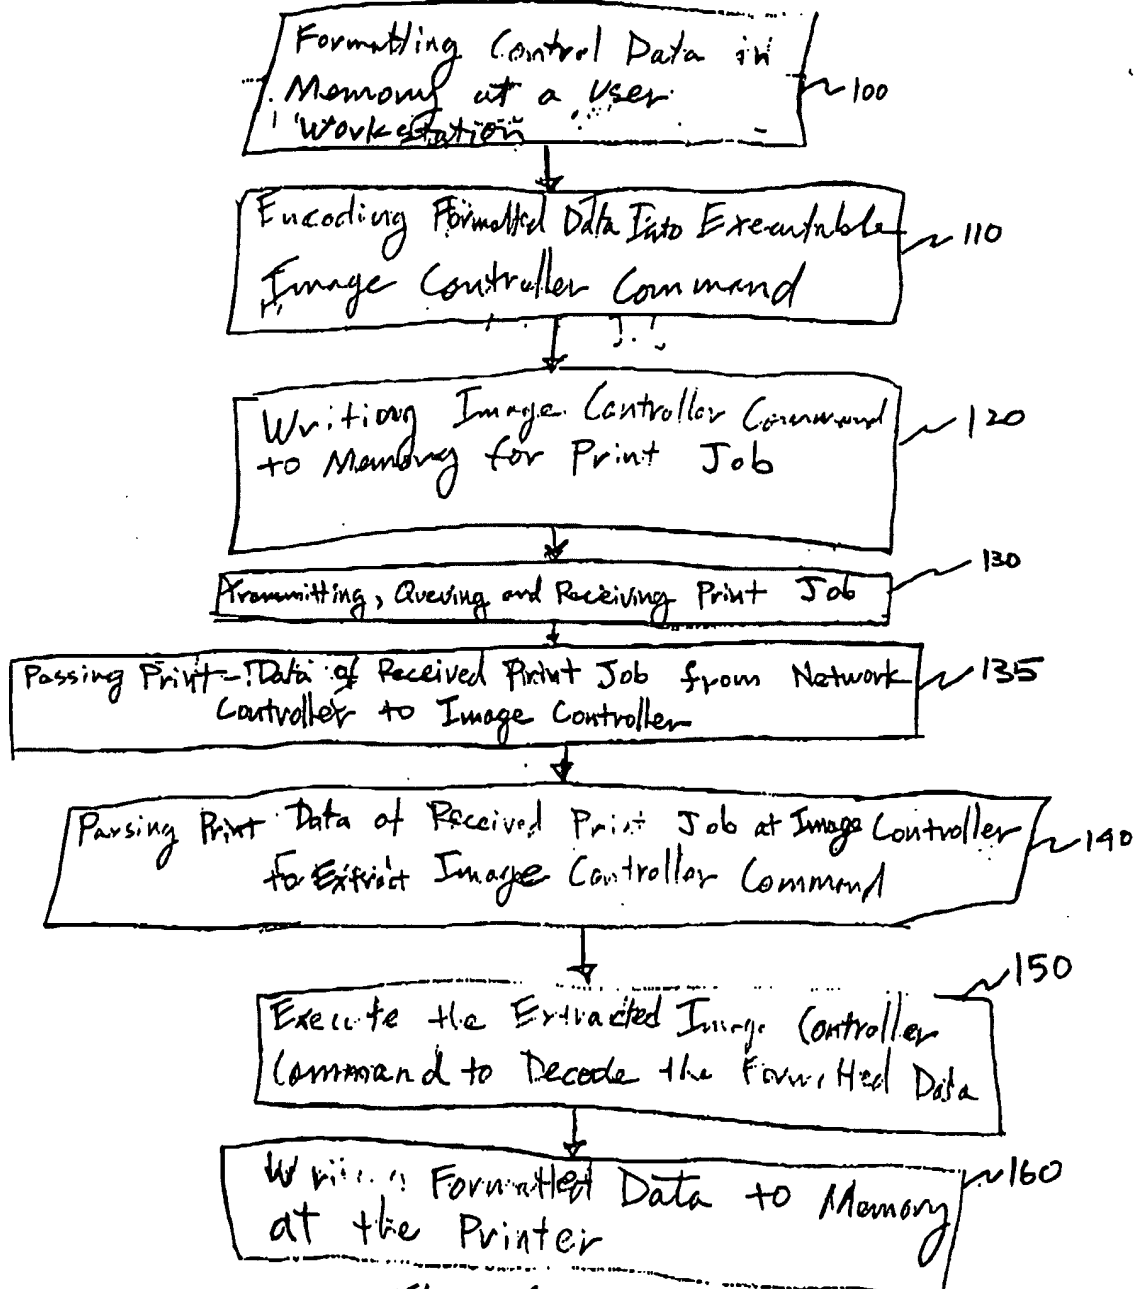 Formatting Control Data in
Memory at a User
Workstation
100
Encoding Formatted Data Into Executable
Image Controller Command
110
Writing Image Controller Command
to Memory for Print Job
120
Transmitting, Queuing and Receiving Print Job
130
Passing Print Data of Received Print Job from Network
Controller to Image Controller
135
Parsing Print Data of Received Print Job at Image Controller
to Extract Image Controller Command
140
Execute the Extracted Image Controller
Command to Decode the Formatted Data
150
Writing Formatted Data to Memory
at the Printer
160